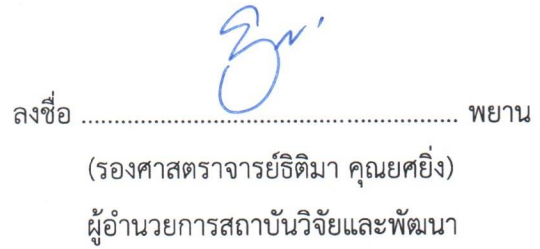 ลงชื่อ ........................................................... พยาน
(รองศาสตราจารย์ธิติมา คุณยศยิ่ง)
ผู้อำนวยการสถาบันวิจัยและพัฒนา